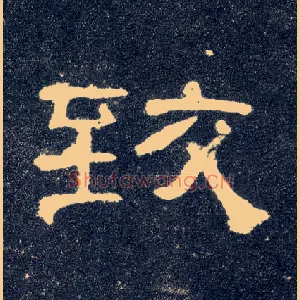 致
Shufawang.CN